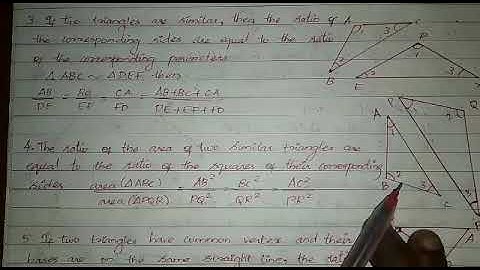 3. If two triangles are similar, then the ratio of
the corresponding sides are equal to the ratio
of the corresponding perimeters
Δ ABC ~ Δ DEF then
AB/DE = BC/EF = CA/FD = AB+BC+CA/DE+EF+FD
4. The ratio of the area of two similar triangles are
equal to the ratio of the squares of their corresponding
sides area (Δ ABC)/area (Δ PQR) = AB²/PQ² = BC²/QR² = AC²/PR²
5. If two triangles have common vertex and their
bases are on the same straight line, the
A
1
3
B
2
E
P
1
2
3
P
2
A
1
B
2
3
C